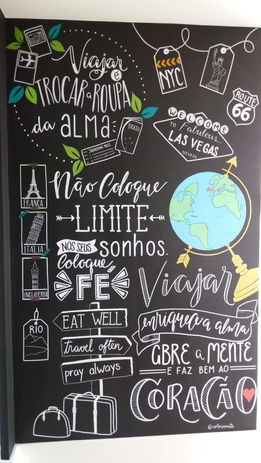 Viajar
é
TROCAR a ROUPA
da ALMA
NYC
ROUTE
66
WELCOME
TO Fabulous
LAS VEGAS
NEVADA
Não Coloque
LIMITE
NOS SEUS sonhos.
coloque
FÉ
FRANÇA
ITÁLIA
INGLATERRA
RIO
EAT WELL
travel often
pray always
Viajar
enriquece a alma
ABRE a MENTE
E FAZ BEM AO
CORAÇÃO